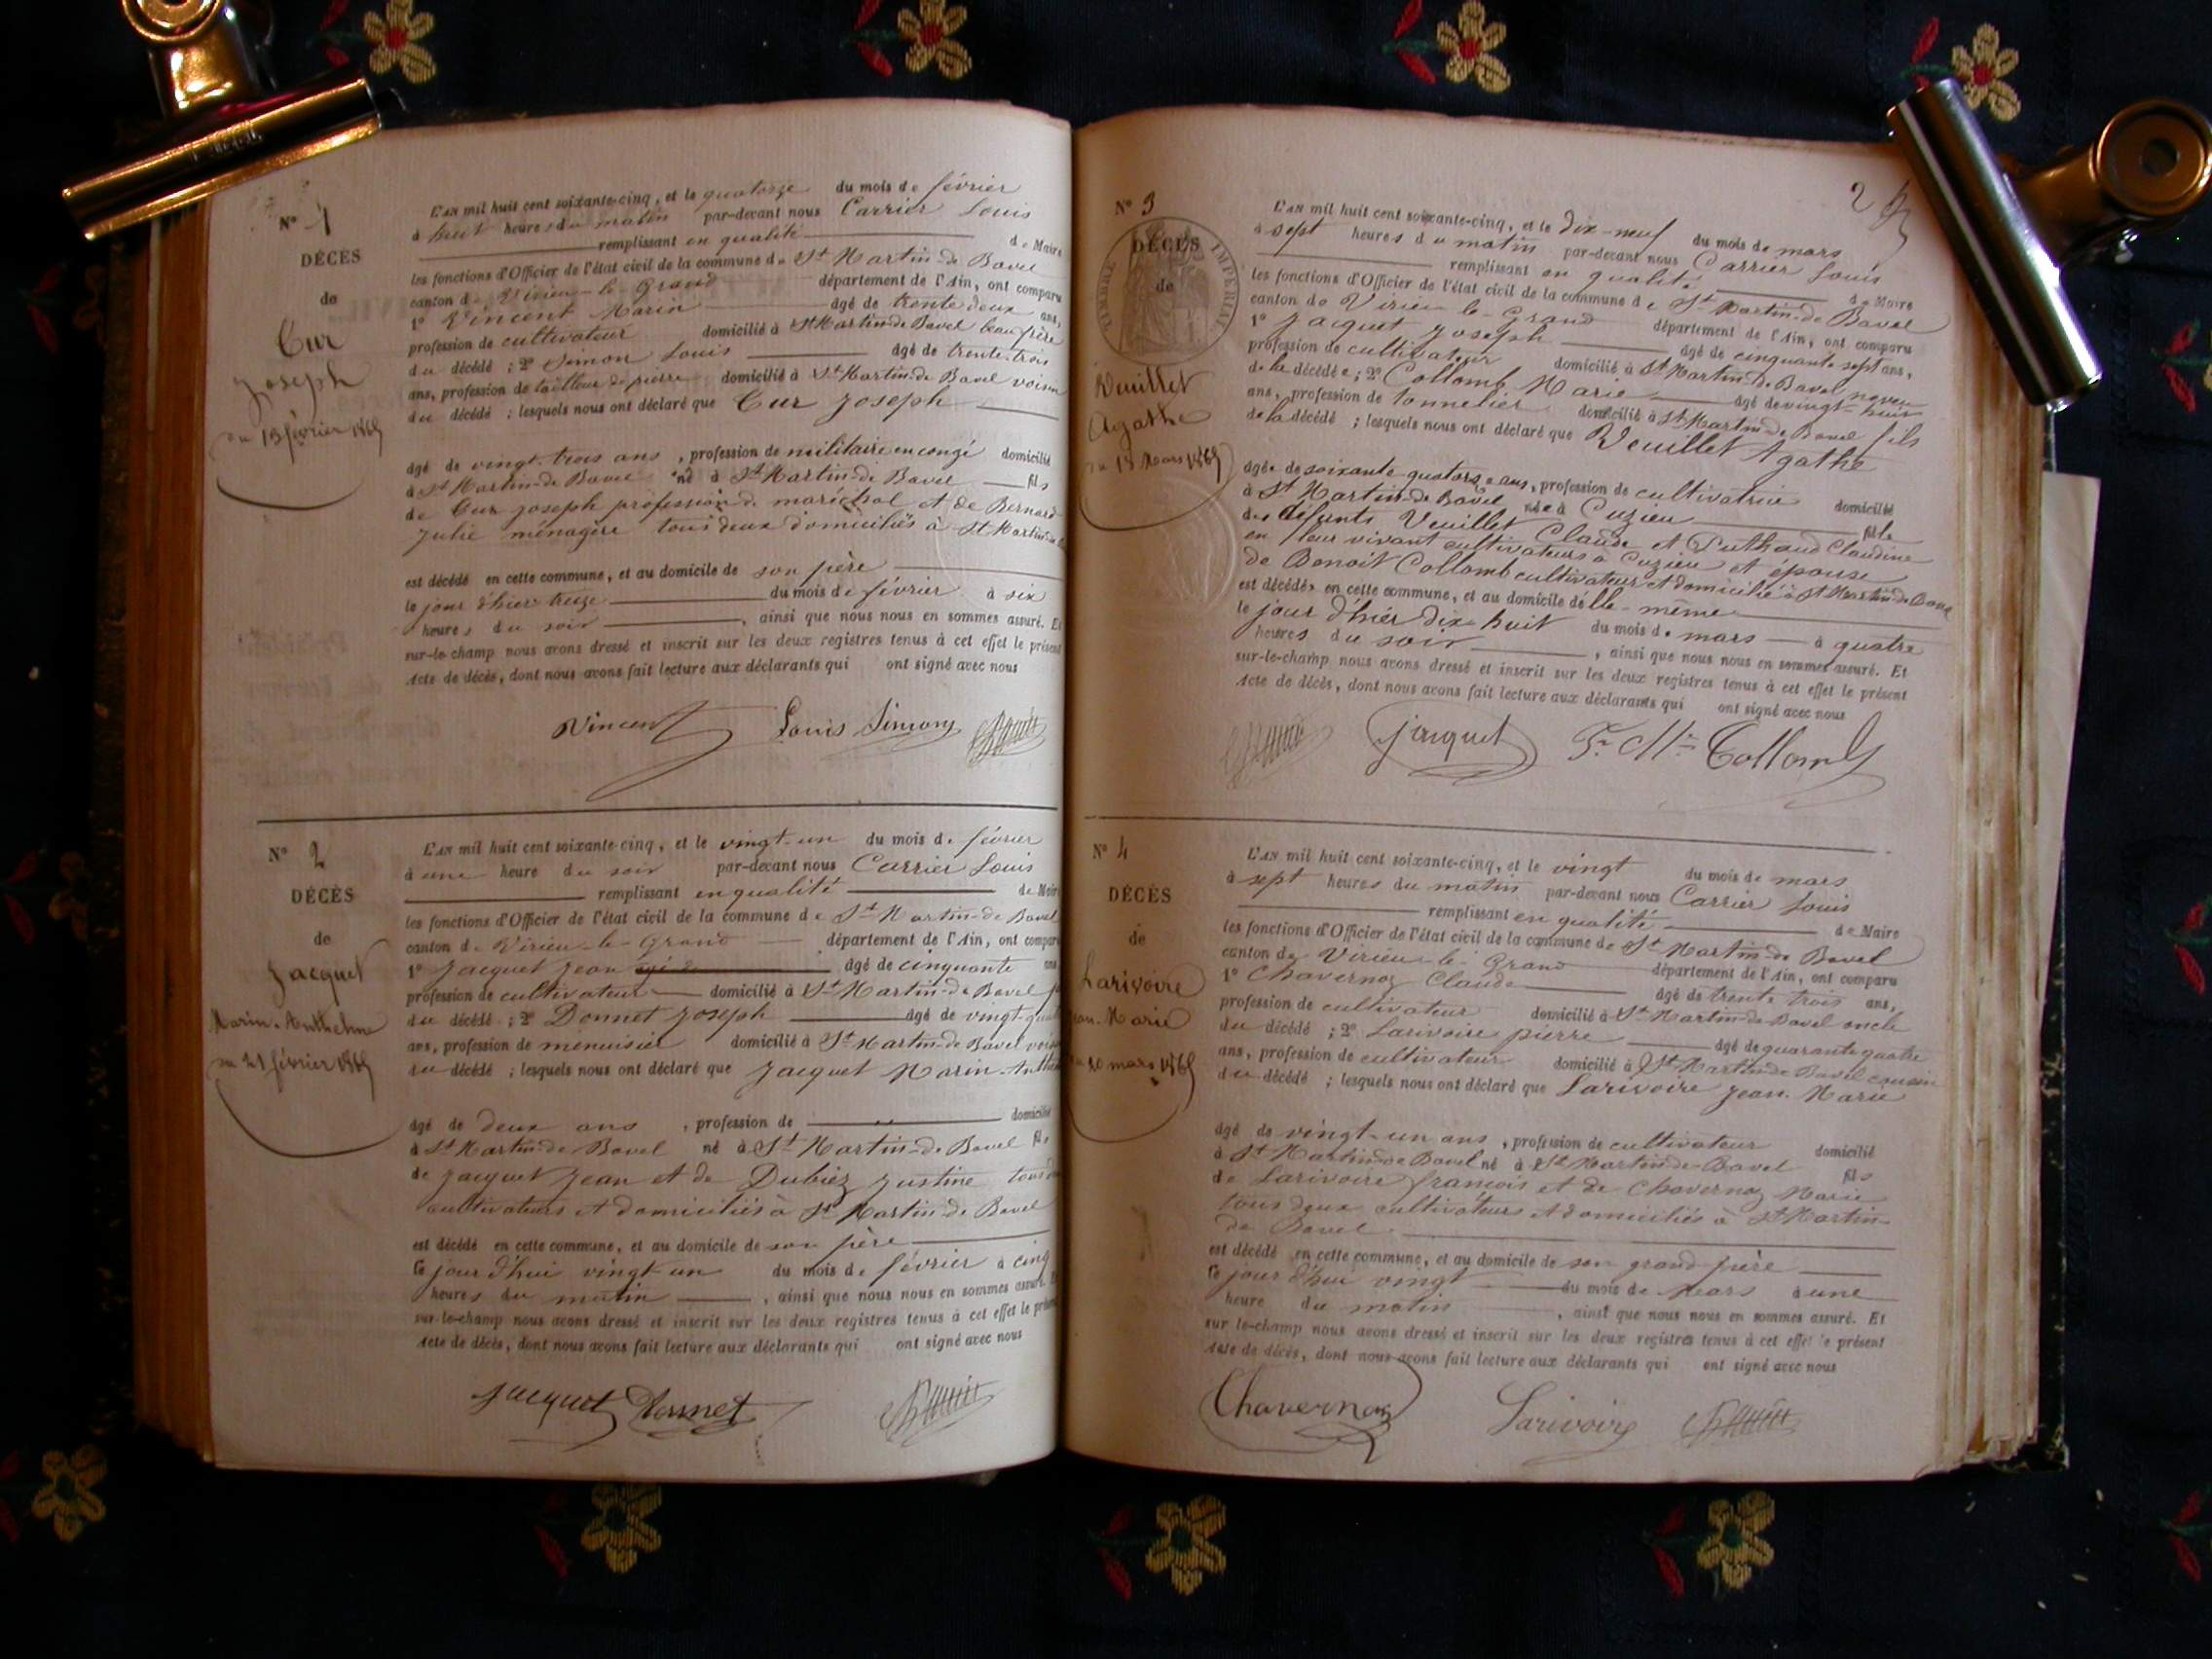 N° 1
DÉCÈS
de
Cur
Joseph
du 13 février 1865
L'AN mil huit cent soixante-cinq, et le quatorze du mois de février
à huit heures du matin par-devant nous Carrier Louis
remplissant en qualité de Maire
les fonctions d'Officier de l'état civil de la commune de St Martin-de Bavel
canton de Virieu-le-Grand département de l'Ain, ont comparu
1° Vincent Marin âgé de trente deux ans,
profession de cultivateur domicilié à St Martin-de Bavel beau frère
du décédé ; 2° Simon Louis âgé de trente-trois
ans, profession de tailleur de pierre domicilié à St Martin-de Bavel voisin
du décédé ; lesquels nous ont déclaré que Cur Joseph
âgé de vingt-trois ans, profession de militaire en congé domicilié
à St Martin-de Bavel né à St Martin-de Bavel fils
de Cur Joseph profession de maréchal et de Bernard
Julie ménagère tous deux domiciliés à St Martin-de
est décédé en cette commune, et au domicile de son père
le jour d'hier treize du mois de février à six
heures du soir, ainsi que nous nous en sommes assuré. Et
sur-le-champ nous avons dressé et inscrit sur les deux registres tenus à cet effet le présent
acte de décès, dont nous avons fait lecture aux déclarants qui ont signé avec nous
Vincent Louis Simon
N° 2
DÉCÈS
de
Jacquet
Marin-Anthelme
du 21 février 1865
L'AN mil huit cent soixante-cinq, et le vingt-un du mois de février
à une heure du soir par-devant nous Carrier Louis
remplissant en qualité de Maire
les fonctions d'Officier de l'état civil de la commune de St Martin-de Bavel
canton de Virieu-le-Grand département de l'Ain, ont comparu
1° Jacquet Jean âgé de cinquante ans
profession de cultivateur domicilié à St Martin-de Bavel
du décédé ; 2° Donnet Joseph âgé de vingt-quat
ans, profession de menuisier domicilié à St Martin-de Bavel voisin
du décédé ; lesquels nous ont déclaré que Jacquet Marin-Anthel
âgé de deux ans, profession de domicilié
à St Martin-de Bavel né à St Martin-de Bavel fils
de Jacquet Jean et de Dubiez Justine tous d
cultivateurs et domiciliés à St Martin-de Bavel
est décédé en cette commune, et au domicile de son père
le jour d'hui vingt-un du mois de février à cinq
heures du matin, ainsi que nous nous en sommes assuré. Et
sur-le-champ nous avons dressé et inscrit sur les deux registres tenus à cet effet le présent
acte de décès, dont nous avons fait lecture aux déclarants qui ont signé avec nous
Jacquet Donnet
2
N° 3
DÉCÈS
de
TIMBRE IMPÉRIAL
Veuillet
Agathe
du 18 Mars 1865
L'AN mil huit cent soixante-cinq, et le dix-neuf du mois de mars
à sept heures du matin par-devant nous Carrier Louis
remplissant en qualité de Maire
les fonctions d'Officier de l'état civil de la commune de St Martin-de Bavel
canton de Virieu-le-Grand département de l'Ain, ont comparu
1° Jacquet Joseph âgé de cinquante sept ans,
profession de cultivateur domicilié à St Martin-de Bavel neveu
de la décédée ; 2° Collomb Marie âgé de vingt-huit
ans, profession de tonnelier domicilié à St Martin-de Bavel fils
de la décédé ; lesquels nous ont déclaré que Veuillet Agathe
âgée de soixante quatorze ans, profession de cultivatrice domicilié
à St Martin-de Bavel née à Cuzieu fille
des défunts Veuillet Claude et Puthaud Claudine
en leur vivant cultivateurs à Cuzieu et épouse
de Benoit Collomb cultivateur et domicilié à St Martin-de Bavel
est décédée en cette commune, et au domicile d'elle-même
le jour d'hier dix huit du mois de mars à quatre
heures du soir, ainsi que nous nous en sommes assuré. Et
sur-le-champ nous avons dressé et inscrit sur les deux registres tenus à cet effet le présent
acte de décès, dont nous avons fait lecture aux déclarants qui ont signé avec nous
Jacquet Collomb
N° 4
DÉCÈS
de
Larivoire
Jean-Marie
20 mars 1865
L'AN mil huit cent soixante-cinq, et le vingt du mois de mars
à sept heures du matin par-devant nous Carrier Louis
remplissant en qualité de Maire
les fonctions d'Officier de l'état civil de la commune de St Martin-de Bavel
canton de Virieu-le-Grand département de l'Ain, ont comparu
1° Chavernoz Claude âgé de trente trois ans,
profession de cultivateur domicilié à St Martin-de Bavel oncle
du décédé ; 2° Larivoire pierre âgé de quarante quatre
ans, profession de cultivateur domicilié à St Martin-de Bavel cousin
du décédé ; lesquels nous ont déclaré que Larivoire Jean-Marie
âgé de vingt-un ans, profession de cultivateur domicilié
à St Martin-de Bavel né à St Martin-de-Bavel fils
de Larivoire françois et de Chavernoz Marie
tous deux cultivateurs et domiciliés à St Martin-
de Bavel
est décédé en cette commune, et au domicile de son grand-père
le jour d'hui vingt du mois de Mars à une
heure du matin, ainsi que nous nous en sommes assuré. Et
sur le-champ nous avons dressé et inscrit sur les deux registres tenus à cet effet le présent
acte de décès, dont nous avons fait lecture aux déclarants qui ont signé avec nous
Chavernoz Larivoire